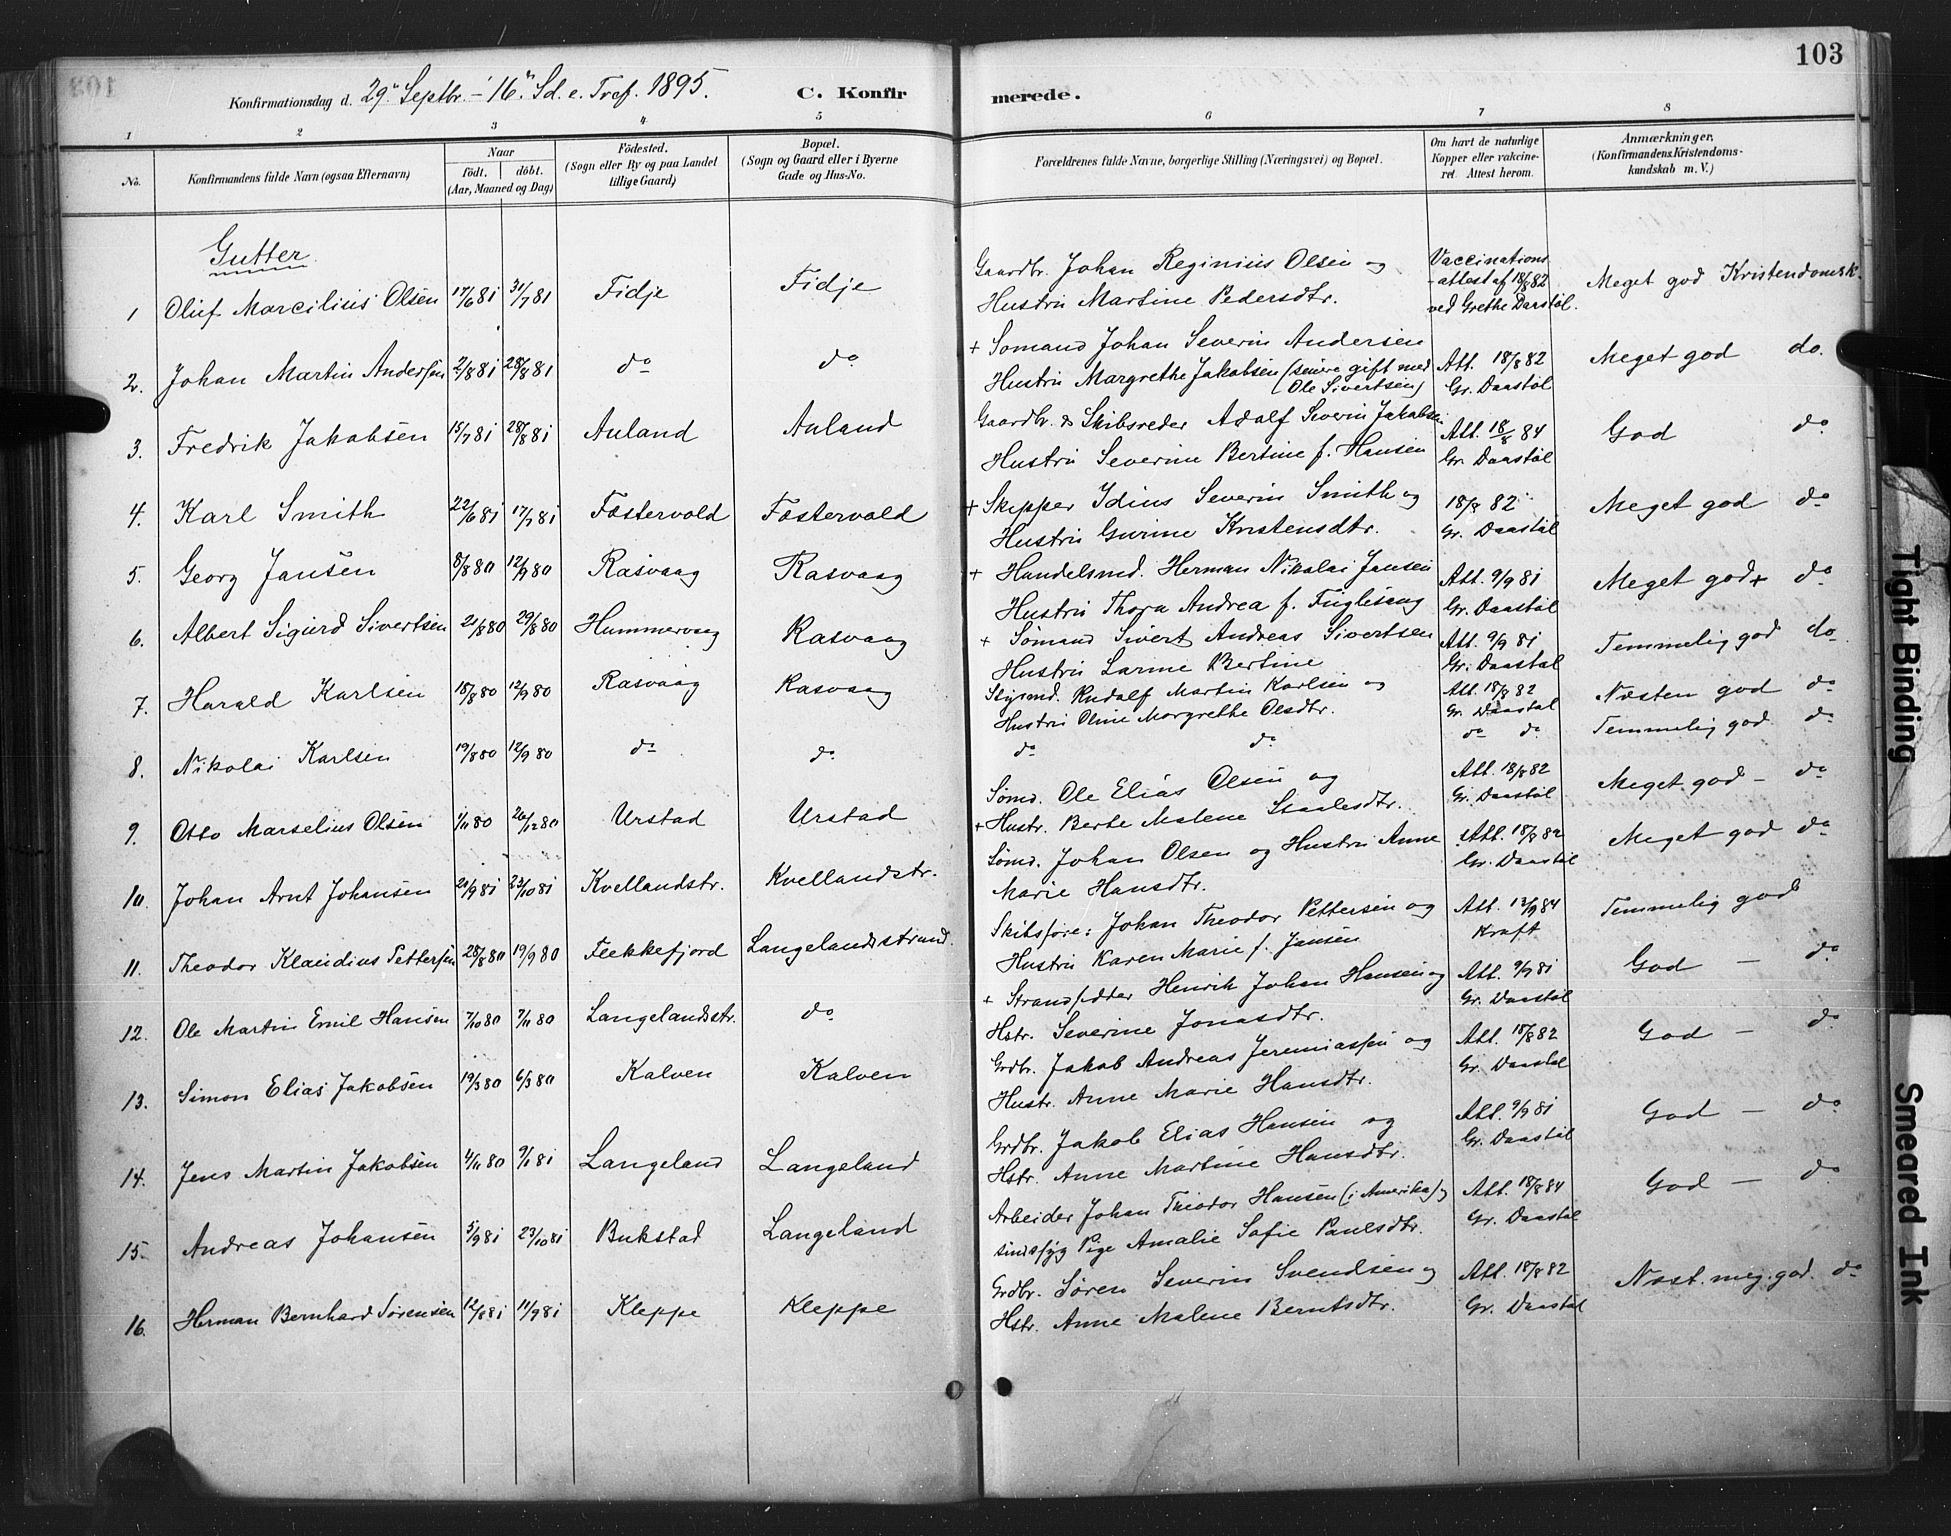 103
Konfirmationsdag d. 29de Septbr. - 16de Sd. e. Tref. 1895.
C. Konfir merede.
1 2 3 4 5 6 7 8
No.
Konfirmandens fulde Navn (ogsaa Efternavn)
Naar
födt. döbt.
(Aar, Maaned og Dag)
Födested.
(Sogn eller By og paa Landet
tillige Gaard)
Bopæl.
(Sogn og Gaard eller i Byerne
Gade og Hus-No.
Forældrenes fulde Navne, borgerlige Stilling (Næringsvei) og Bopæl.
Om havt de naturlige
Kopper eller vakcine-
ret. Attest herom.
Anmærkninger.
(Konfirmandens Kristendoms-
kundskab m. V.)
Gutter
1 Oluf Marcilius Olsen 17/6 81 31/7 81 Fidje Fidje
Gaardbr. Johan Reginius Olsen og
Hustru Martine Pedersdtr.
Vaccinations
-attest af 18/8 82
ved Grethe Daastøl.
Meget god Kristendomsk.
2. Johan Martin Andersen 2/8 81 28/8 81 do do
+ Sømand Johan Severin Andersen
Hustru Margrethe Jakobsen (senere gift med
Ole Sivertsen)
Att. 18/8 82
Gr. Daastøl
Meget god do.
3. Fredrik Jakobsen 15/7 81 28/8 81 Auland Auland
Gaardbr. & Skibsreder Adolf Severin Jakobsen
Hustru Severine Bertine f. Hansen
Att. 18/8 84
Gr. Daastøl
God do
4. Karl Smith 22/6 81 17/7 81 Fostervold Fostervold
+ Skipper Idius Severin Smith og
Hustru Gurine Kristensdtr.
18/8 82
Gr. Daastøl
Meget god do
5. Georg Jansen 8/8 80 12/9 80 Rasvaag Rasvaag
+ Handelsmd. Herman Nikolai Jansen
Hustru Thora Andrea f. Fuglesang
Att. 9/9 81
Gr. Daastøl
Meget god + do
6. Albert Sigurd Sivertsen 21/8 80 29/8 80 Hummervaag Rasvaag
+ Sømand Sivert Andreas Sivertsen
Hustru Larine Bertine
Att. 9/9 81
Gr. Daastøl
Temmelig god do
7. Harald Karlsen 18/8 80 12/9 80 Rasvaag Rasvaag
Styrmd. Rudolf Martin Karlsen og
Hustru Oline Margrethe Olsdtr.
Att. 18/8 82
Gr. Daastøl
Næsten god do
8. Nikolai Karlsen 19/8 80 12/9 80 do do
do do
do do
Temmelig god do
9. Otto Marselius Olsen 1/11 80 26/12 80 Urstad Urstad
Sømd. Ole Elias Olsen og
+ Hustr. Berte Malene Staalesdtr.
Att. 18/8 82
Gr. Daastøl
Meget god - do
10. Johan Arnt Johansen 21/9 81 23/10 81 Kvellandstr. Kvellandstr.
Sømd. Johan Olsen og Hustru Anne
Marie Hansdtr.
Att. 18/8 82
Gr. Daastøl
Meget god do
11. Theodor Klaudius Pettersen 28/8 80 19/9 80 Flekkefjord Langelandsstrand.
Skibsføre: Johan Theodor Pettersen og
Hustru Karen Marie f. Jansen
Att. 13/9 84
Kraft
Temmelig god
12. Ole Martin Emil Hansen 7/10 80 7/11 80 Langelandsstr. do
+ Strandsidder Henrik Johan Hansen og
Hstr. Severine Jonasdtr.
Att. 9/9 81
Gr. Daastøl
God - do
13. Simon Elias Jakobsen 19/3 80 6/3 80 Kalven Kalven
Grdbr. Jakob Andreas Jeremiassen og
Hustr. Anne Marie Hansdtr.
Att. 18/8 82
Gr. Daastøl
God - do
14. Jens Martin Jakobsen 4/11 80 9/1 81 Langeland Langeland
Grdbr. Jakob Elias Hansen og
Hstr. Anne Martine Hansdtr.
Att. 9/9 81
Gr. Daastøl
God - do
15. Andreas Johansen 5/9 81 23/10 81 Bukstad Langeland
Arbeider Johan Theodor Hansen (i Amerika) og
sindssyg Pige Amalie Sofie Paulsdtr.
Att. 18/8 84
Gr. Daastøl
God - do
16. Herman Bernhard Sørensen 12/8 81 11/9 81 Kleppe Kleppe
Grdbr. Søren Severin Svendsen og
Hstr. Anne Malene Berntsdtr.
Att. 18/8 82
Gr. Daastøl
Næst. meg. god. do
Tight Binding
Smeared Ink